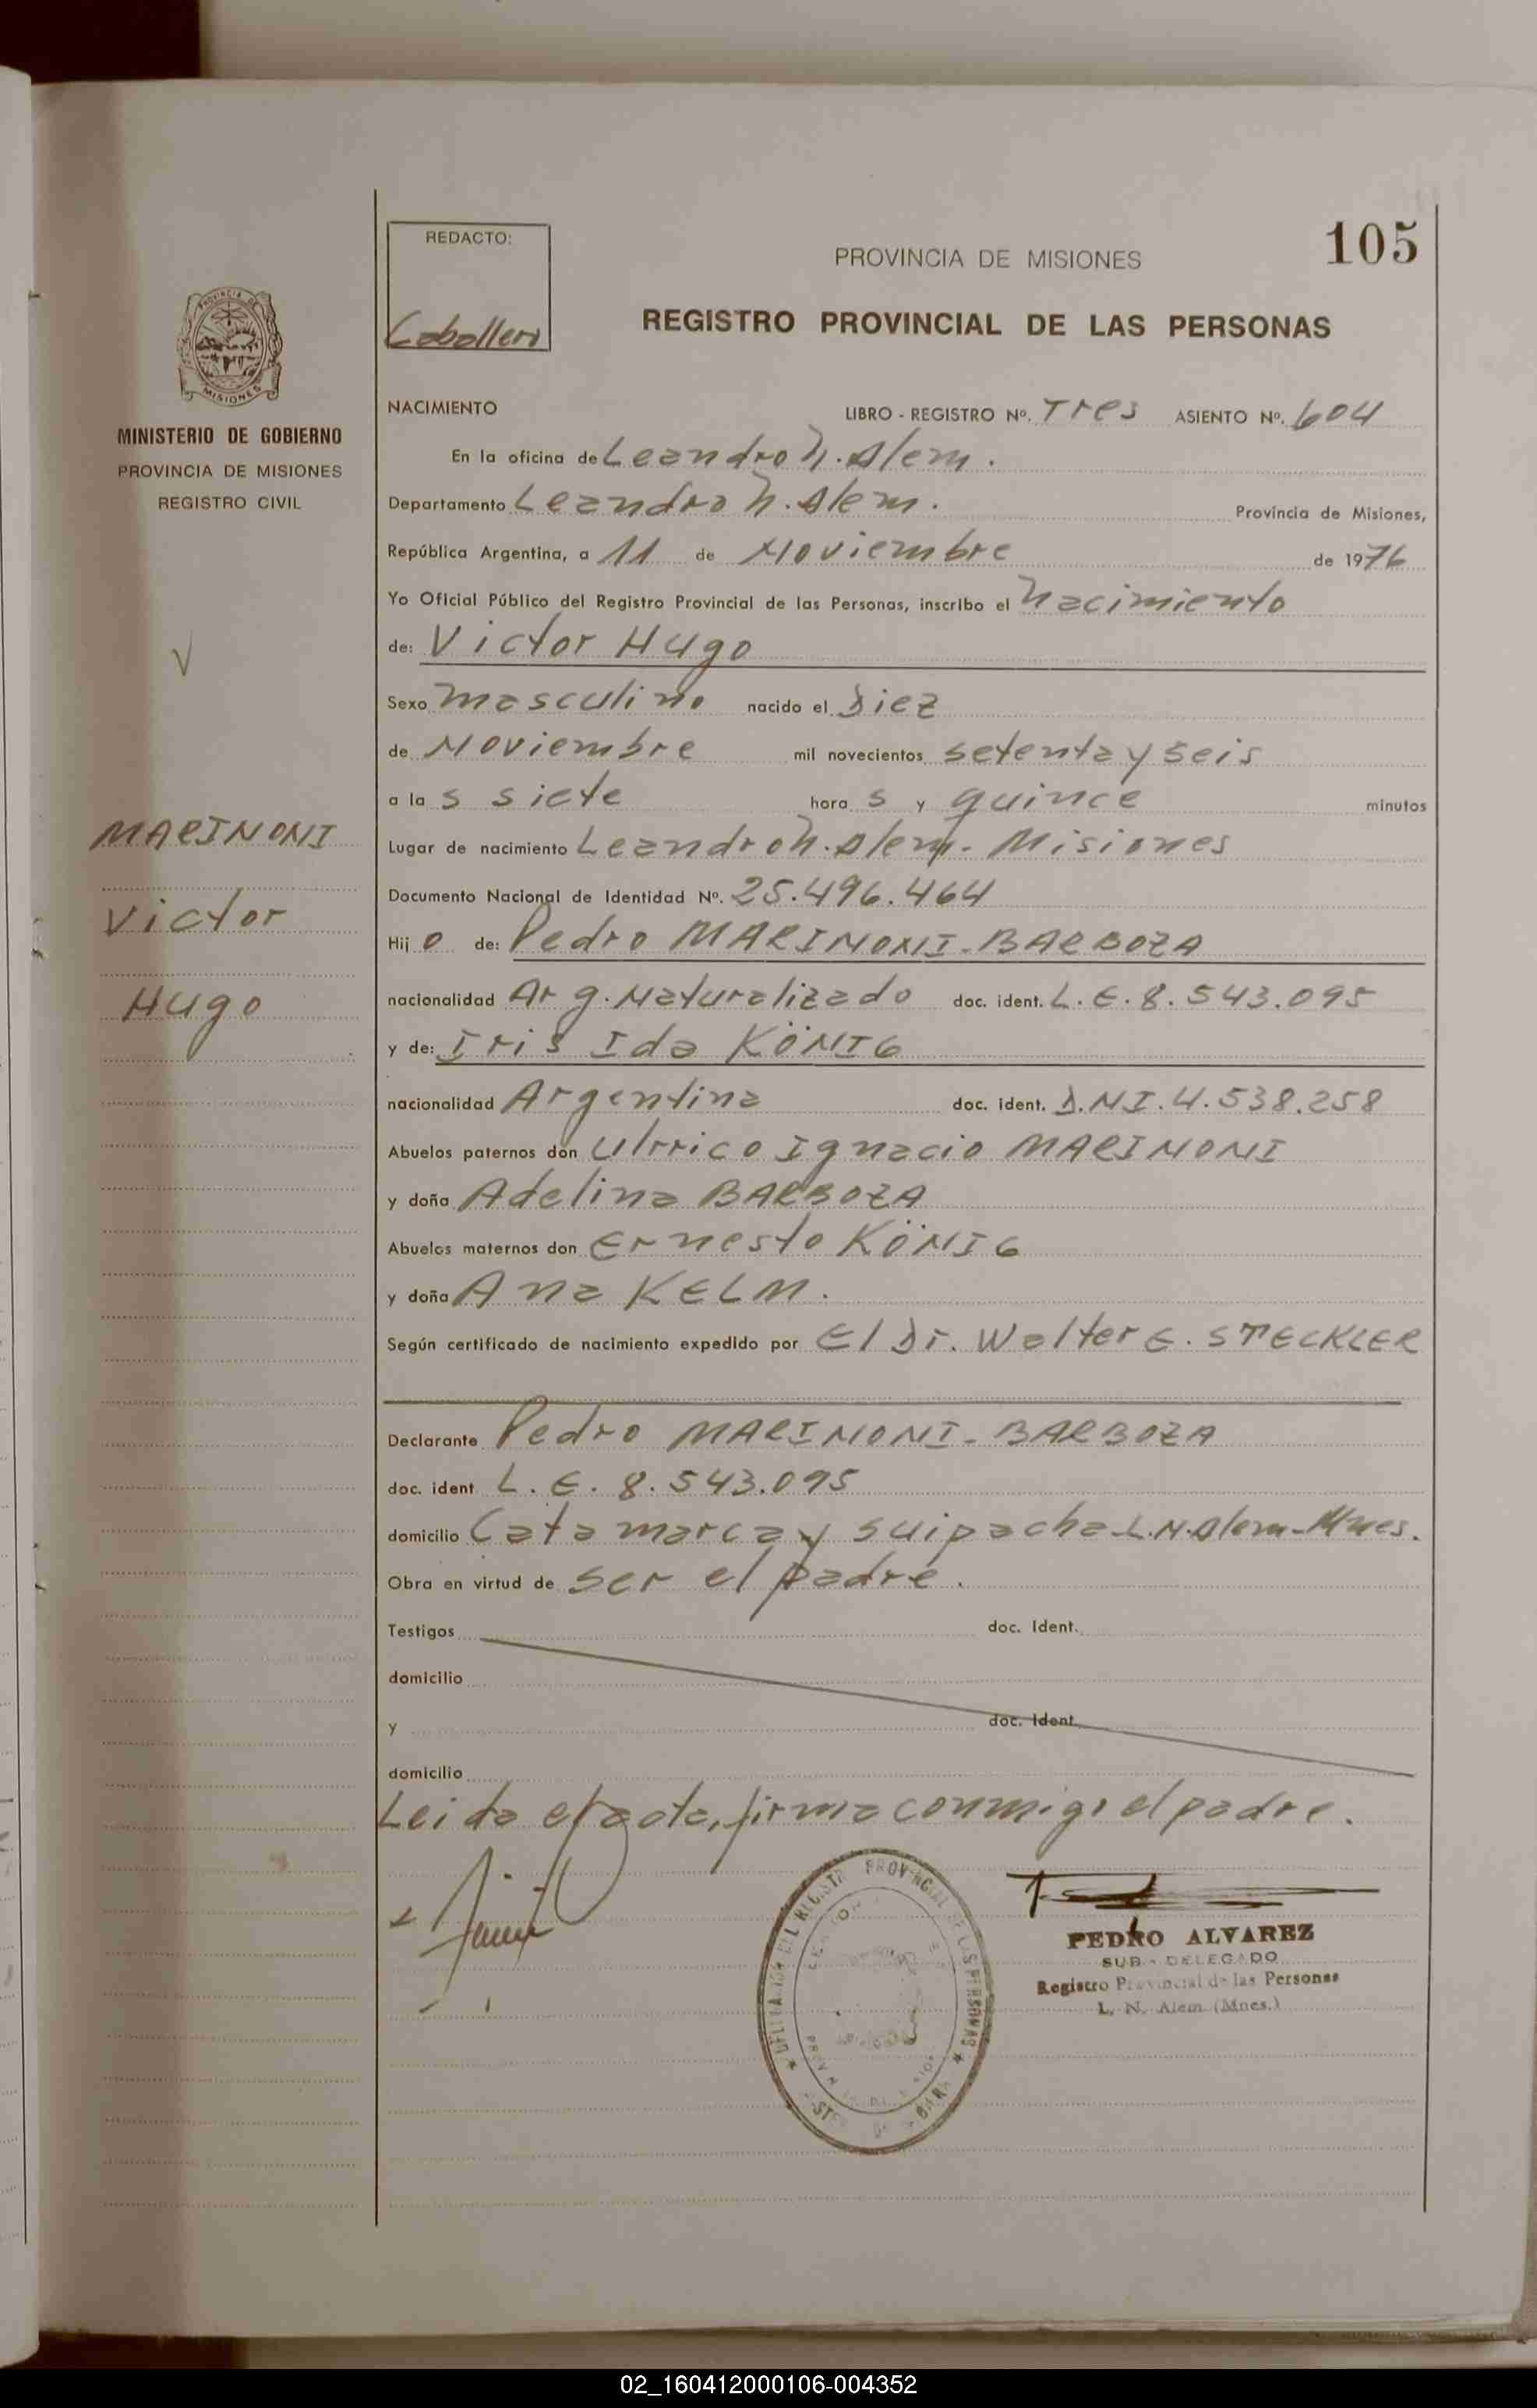 105
REDACTO:
Caballero
PROVINCIA DE MISIONES
REGISTRO PROVINCIAL DE LAS PERSONAS
PROVINCIA DE
MISIONES
MINISTERIO DE GOBIERNO
PROVINCIA DE MISIONES
REGISTRO CIVIL
MARINONI
Victor
Hugo
NACIMIENTO LIBRO - REGISTRO Nº. Tres ASIENTO Nº. 604
En la oficina de Leandro N. Alem.
Departamento Leandro N. Alem. Provincia de Misiones,
República Argentina, a 11 de Noviembre de 1976
Yo Oficial Público del Registro Provincial de las Personas, inscribo el Nacimiento
de: Victor Hugo
Sexo masculino nacido el Diez
de Noviembre mil novecientos setenta y seis
a la s siete hora s y quince minutos
Lugar de nacimiento Leandro N. Alem. Misiones
Documento Nacional de Identidad Nº. 25.496.464
Hij o de: Pedro MARINONI - BARBOZA
nacionalidad Arg. Naturalizado doc. ident. L. E. 8.543.095
y de: Iris Ida KÖNIG
nacionalidad Argentina doc. ident. D.NI. 4.538.258
Abuelos paternos don Ulrrico Ignacio MARINONI
y doña Adelina BARBOZA
Abuelos maternos don Ernesto KÖNIG
y doña Ana KELM.
Según certificado de nacimiento expedido por El Dr. Walter E. STECKLER
Declarante Pedro MARINONI - BARBOZA
doc. ident L. E. 8.543.095
domicilio Catamarca y Suipacha - L.N. Alem - Mnes.
Obra en virtud de ser el padre.
Testigos doc. Ident.
domicilio
y doc. Ident.
domicilio
Leida el acta, firma conmigo el padre.
PEDRO ALVAREZ
SUB - DELEGADO
Registro Provincial de las Personas
L. N. Alem (Mnes.)
02_160412000106-004352